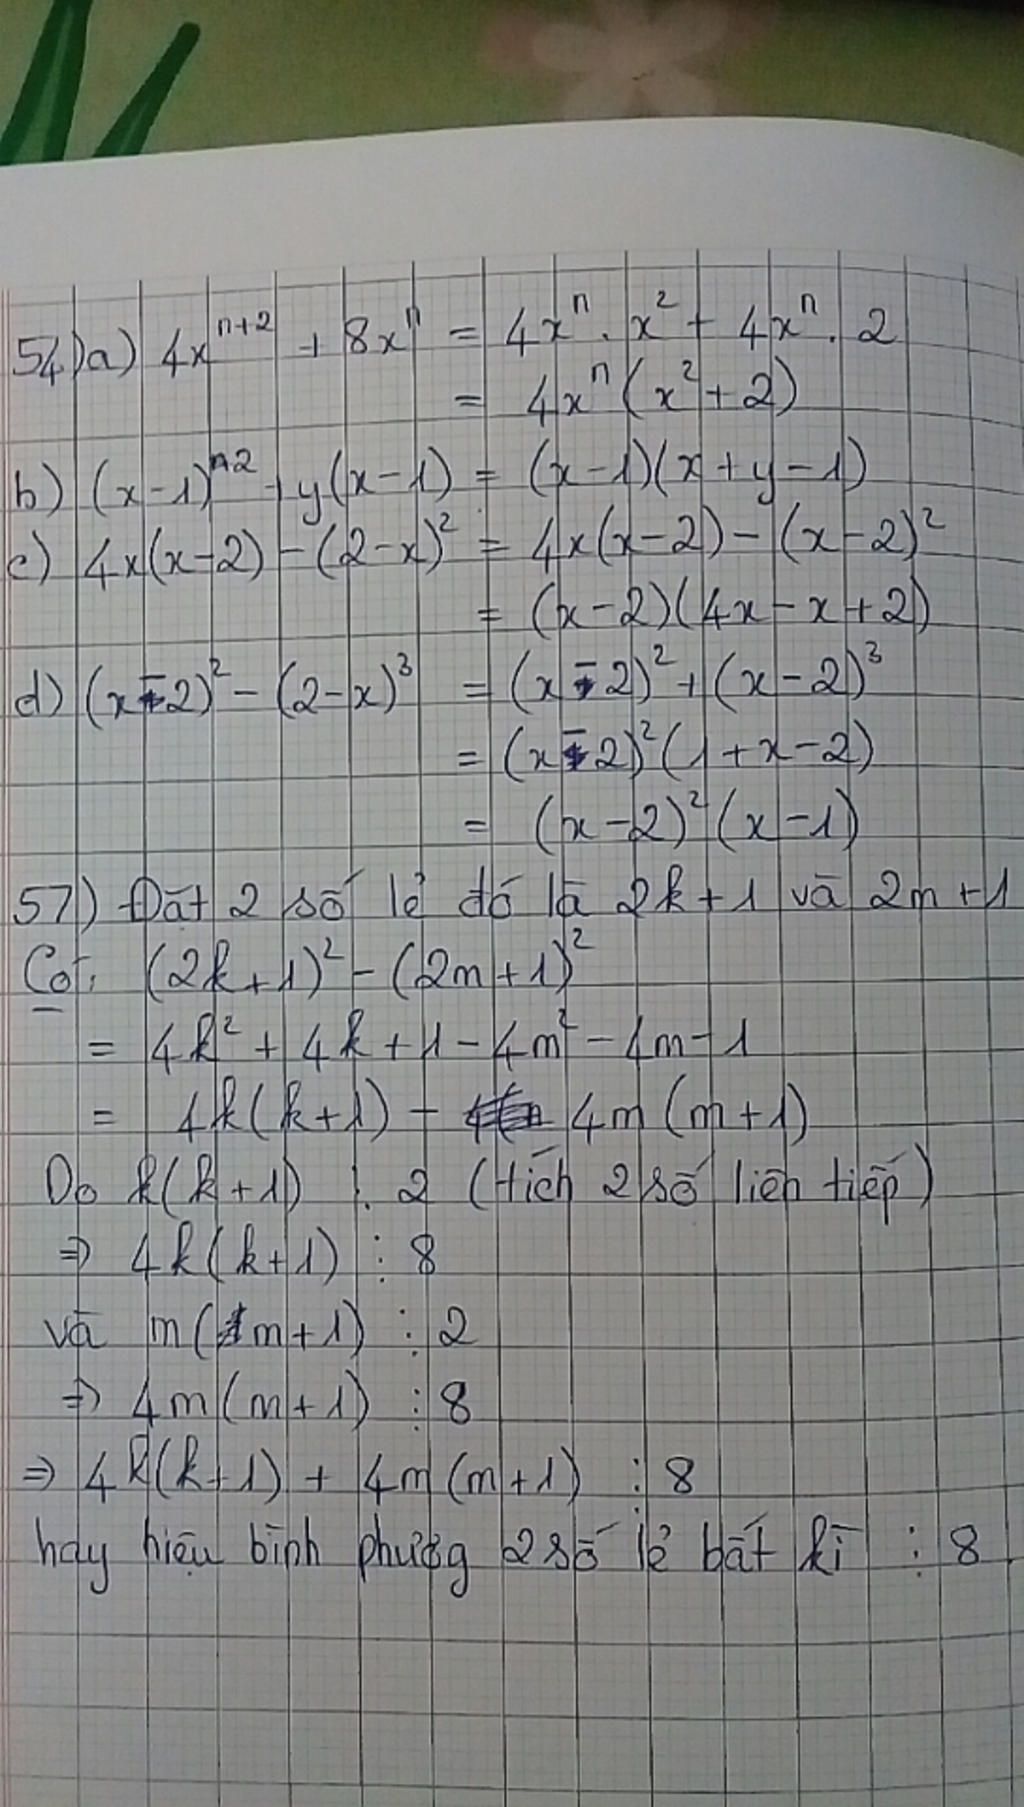 54) a) 4x^(n+2) + 8x^n = 4x^n . x² + 4x^n . 2
= 4x^n (x² + 2)
b) (x-1)² + y(x-1) = (x-1)(x+y-1)
c) 4x(x-2) - (2-x)² = 4x(x-2) - (x-2)²
= (x-2)(4x-x+2)
d) (x-2)² - (2-x)³ = (x-2)² + (x-2)³
= (x-2)² (1+x-2)
= (x-2)² (x-1)
57) Đặt 2 số lẻ đó là 2k+1 và 2m+1
Có: (2k+1)² - (2m+1)²
= 4k² + 4k + 1 - 4m² - 4m - 1
= 4k(k+1) - 4m(m+1)
Do k(k+1) ⋮ 2 (tích 2 số liên tiếp)
⇒ 4k(k+1) ⋮ 8
và m(m+1) ⋮ 2
⇒ 4m(m+1) ⋮ 8
⇒ 4k(k+1) + 4m(m+1) ⋮ 8
hay hiệu bình phương 2 số lẻ bất kì ⋮ 8